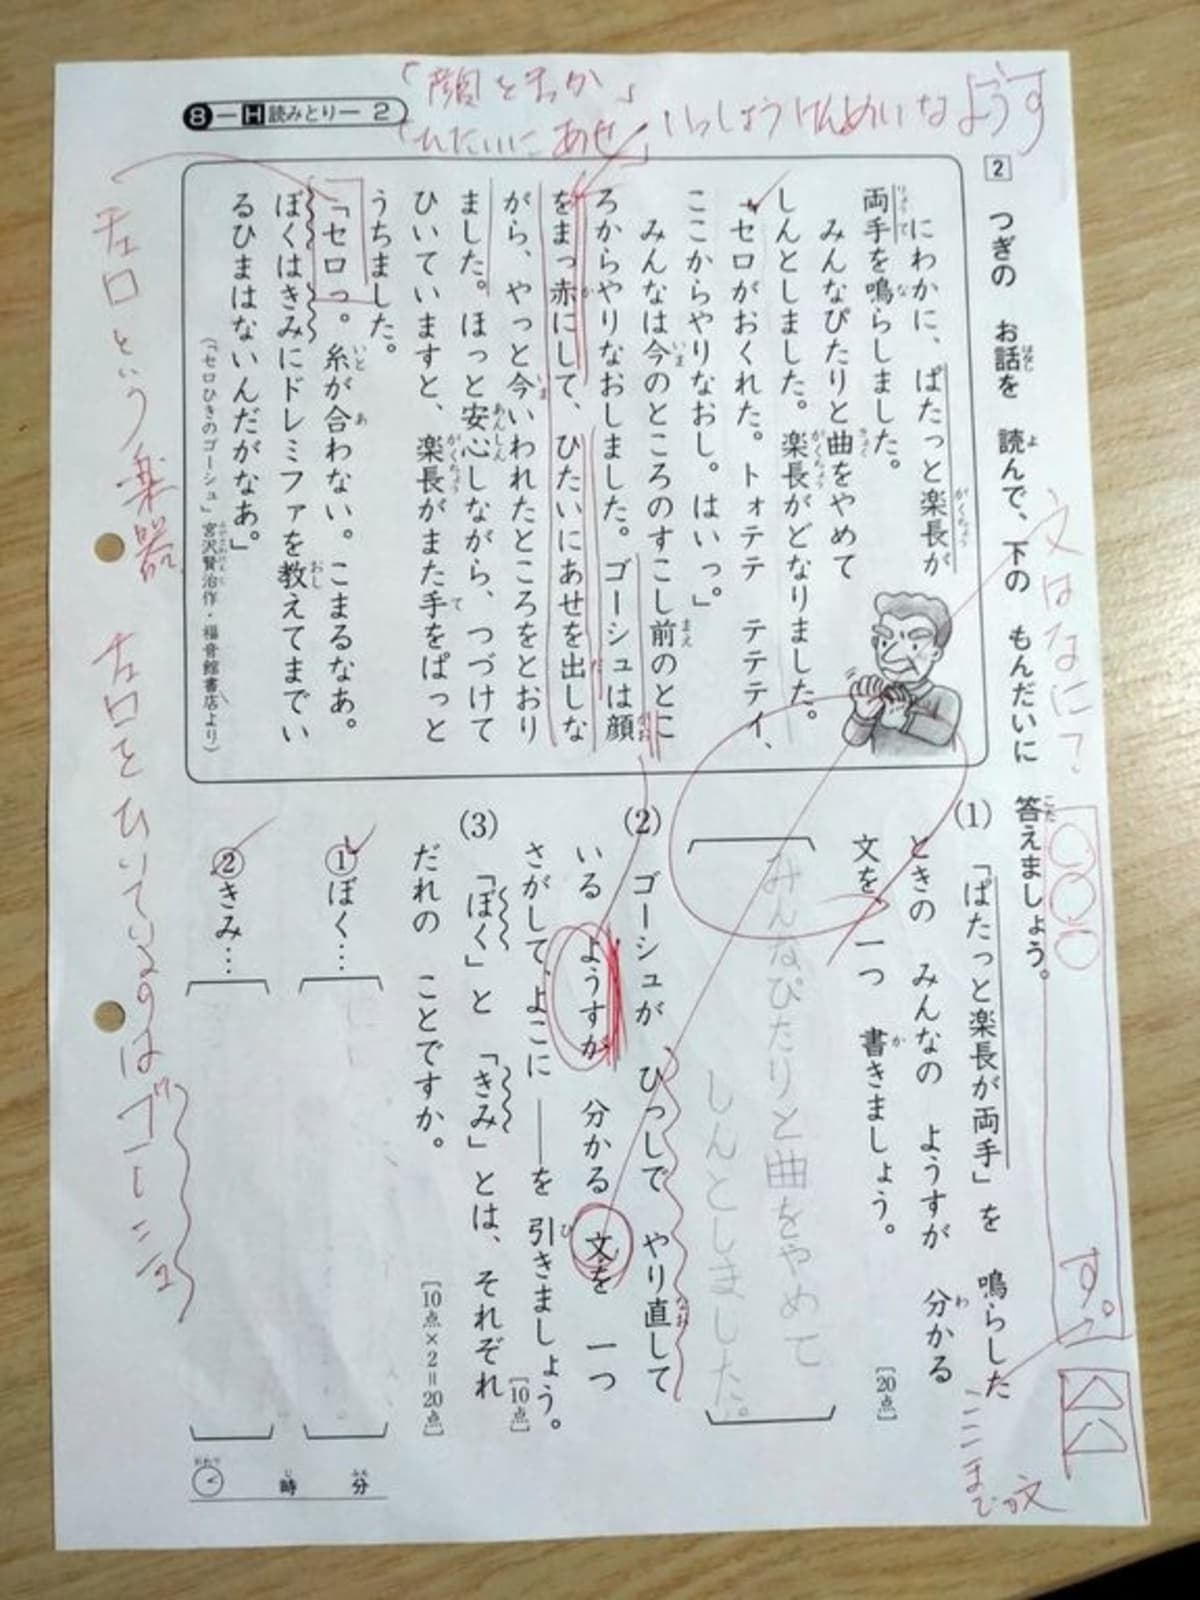 8-H読みとりー2
「顔をまっか」
「ひたいにあせ」
いっしょうけんめいなようす
2 つぎの お話を 読んで、下の もんだいに 答えましょう。
にわかに、ぱたっと楽長が
両手を鳴らしました。
みんなぴたりと曲をやめて
しんとしました。楽長がどなりました。
「セロがおくれた。トォテテ テテテイ、
ここからやりなおし。はいっ。」
みんなは今のところのすこし前のとこ
ろからやりなおしました。ゴーシュは顔
をまっ赤にして、ひたいにあせを出しな
がら、やっと今いわれたところをとおり
ました。ほっと安心しながら、つづけて
ひいていますと、楽長がまた手をぱっと
うちました。
「セロっ。糸が合わない。こまるなあ。
ぼくはきみにドレミファを教えてまでい
るひまはないんだがなあ。」
(「セロひきのゴーシュ」宮沢賢治作・福音館書店より)
チェロという楽器
セロをひいているのはゴーシュ
文はなに?
○○○ す。
ここまでが文
(1) 「ぱたっと楽長が両手」を 鳴らした
ときの みんなの ようすが 分かる
文を、一つ 書きましょう。
[20点]
みんなぴたりと曲をやめて
しんとしました。
(2) ゴーシュが ひっしで やり直して
いる ようすが 分かる 文を 一つ
さがして、よこに ――を 引きましょう。
[10点]
(3) 「ぼく」と 「きみ」とは、それぞれ
だれの ことですか。
[10点×2=20点]
①ぼく…
②きみ…
おわり 時 分